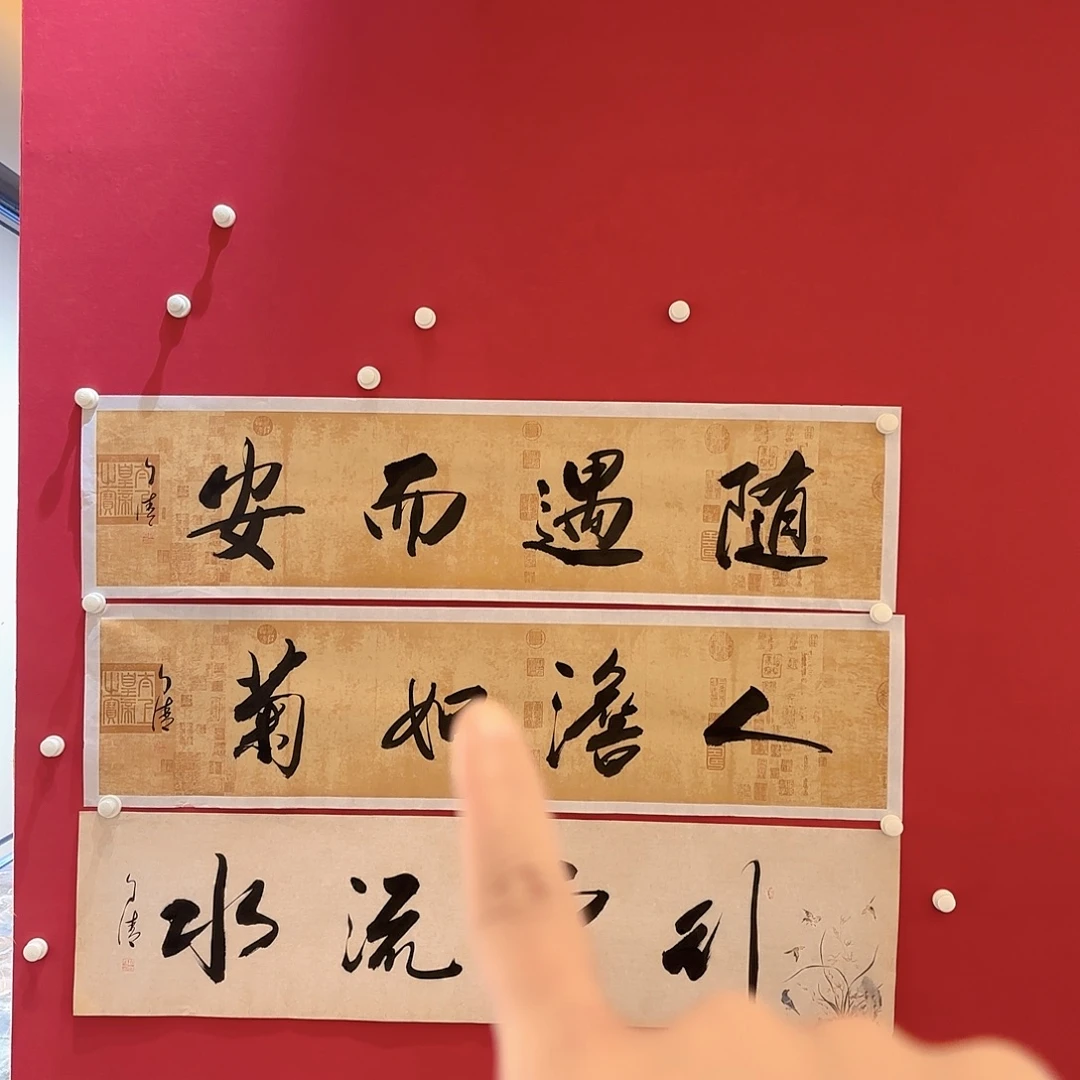 随遇而安
人澹如菊
行流水